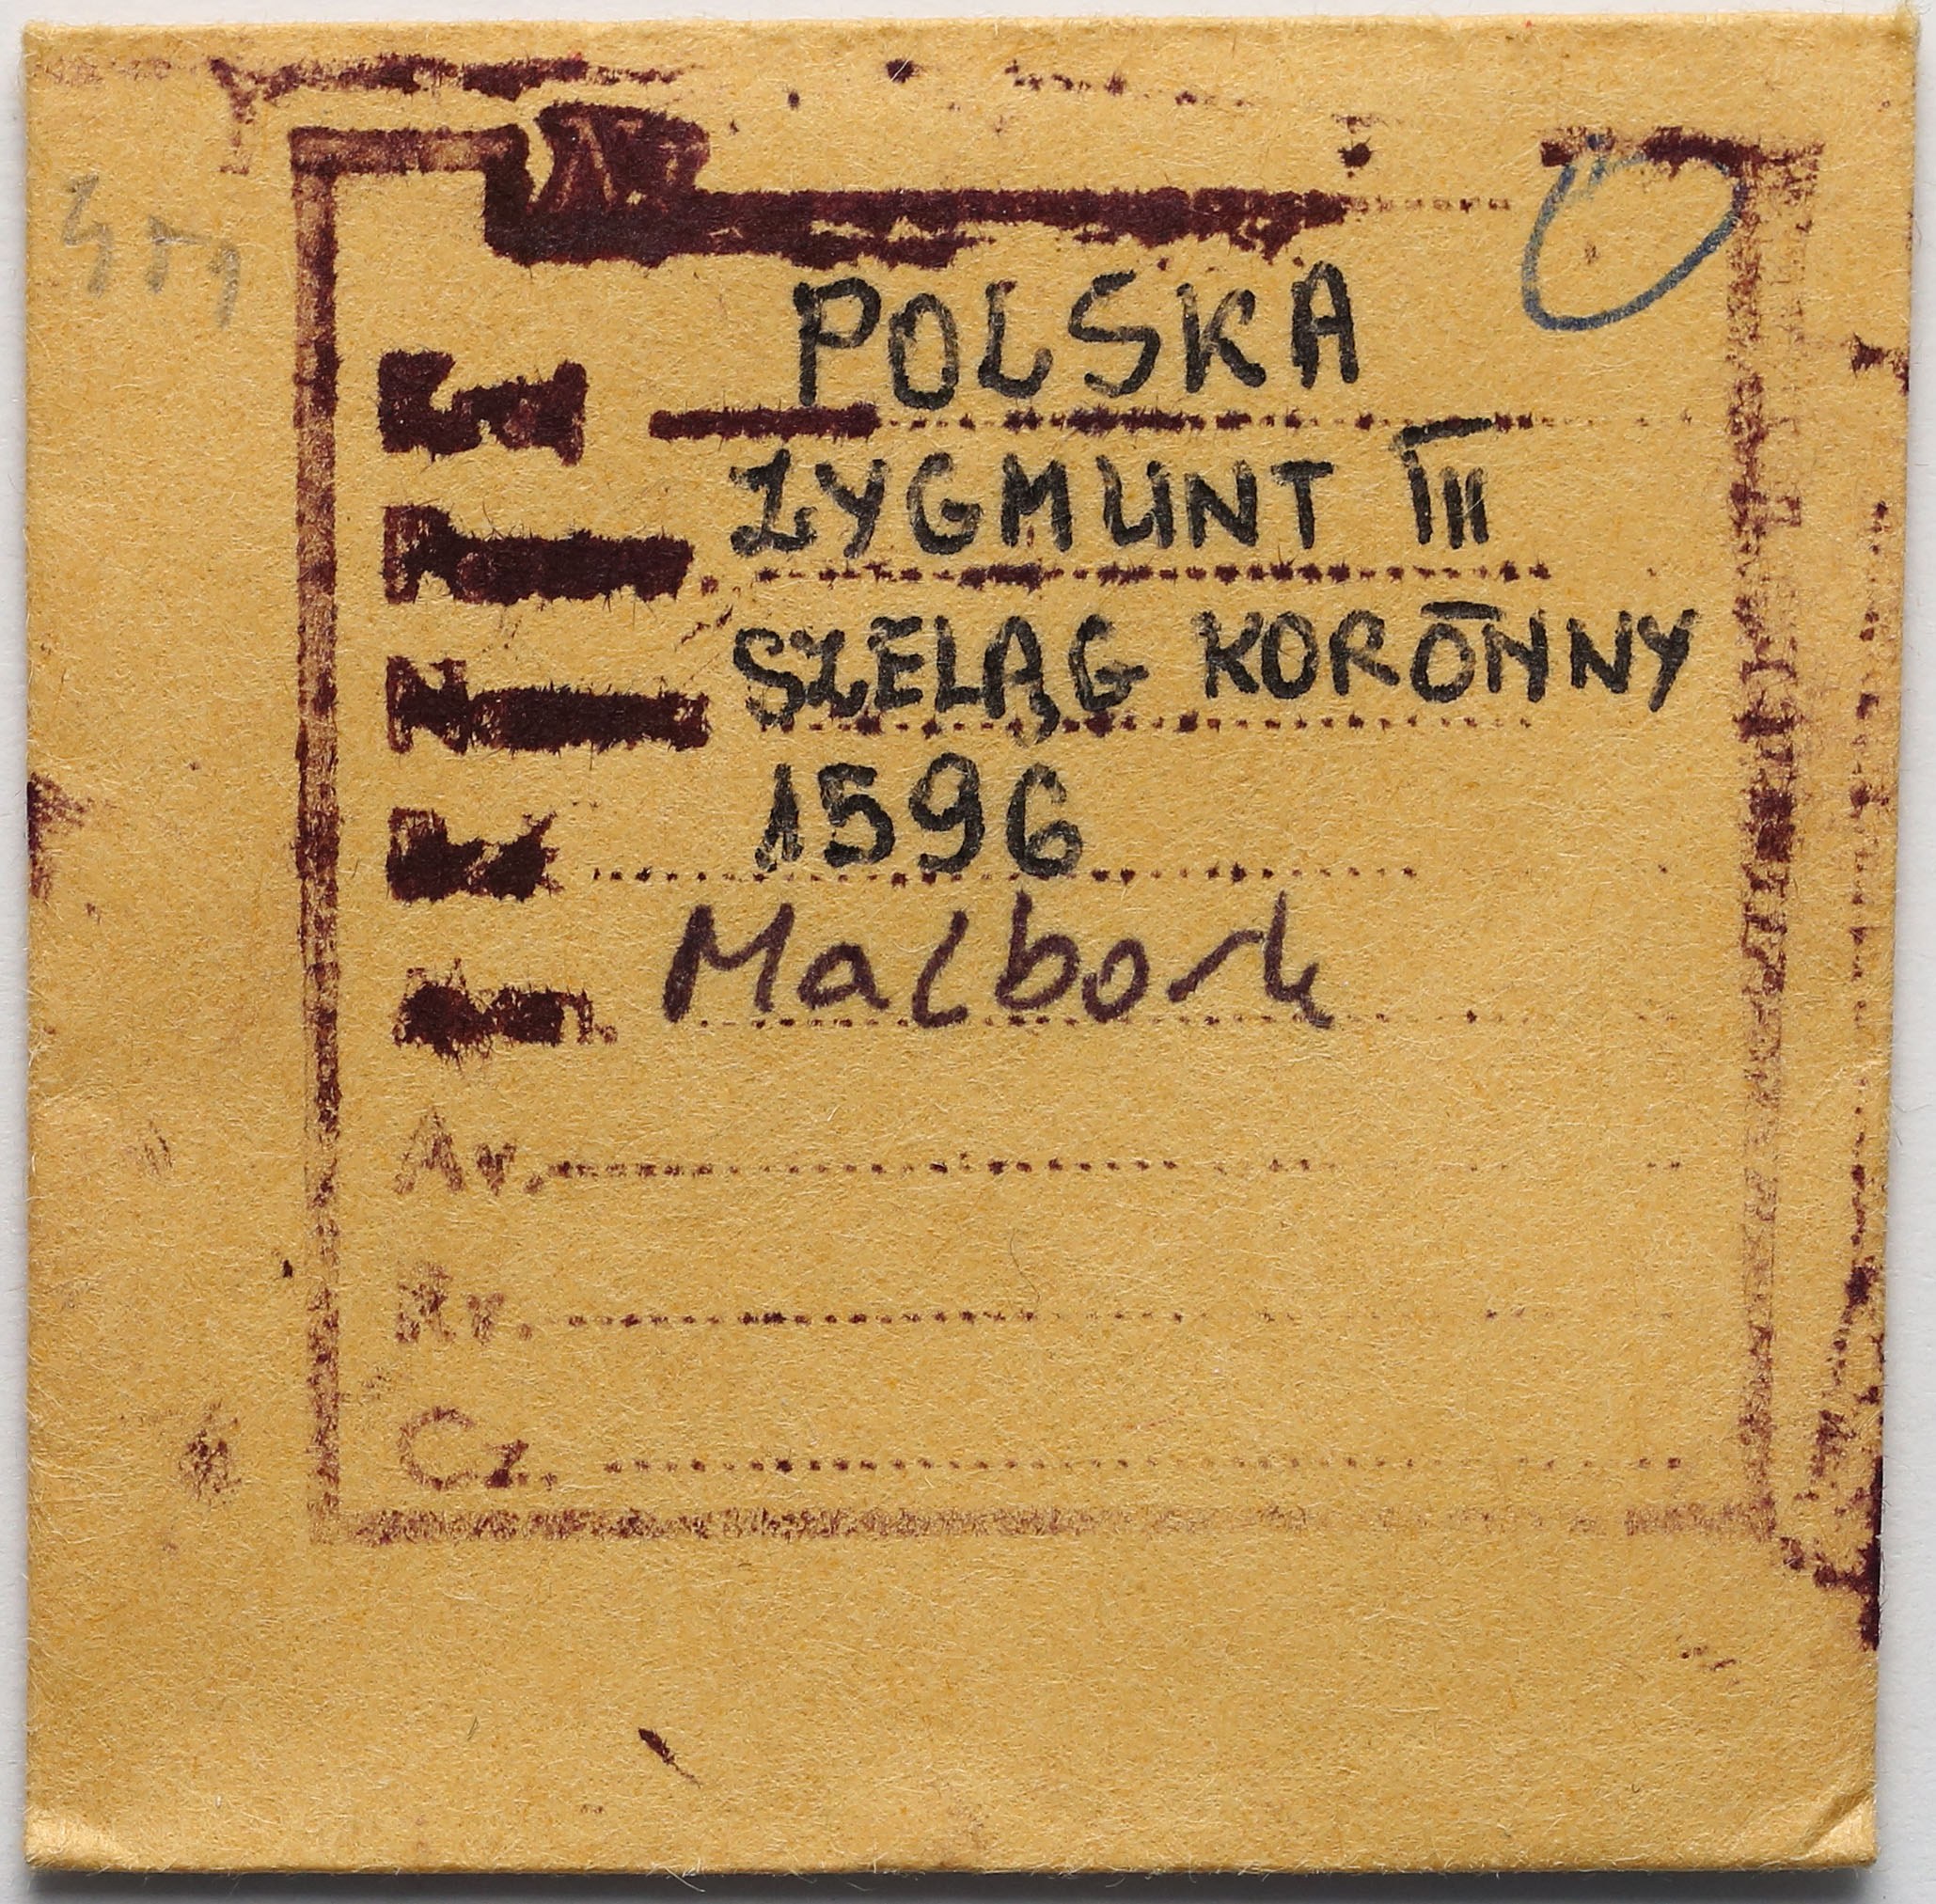 Nr
POLSKA
ZYGMUNT III
SZELĄG KORONNY
1596
Malbork
Av.
Rv.
Cz.